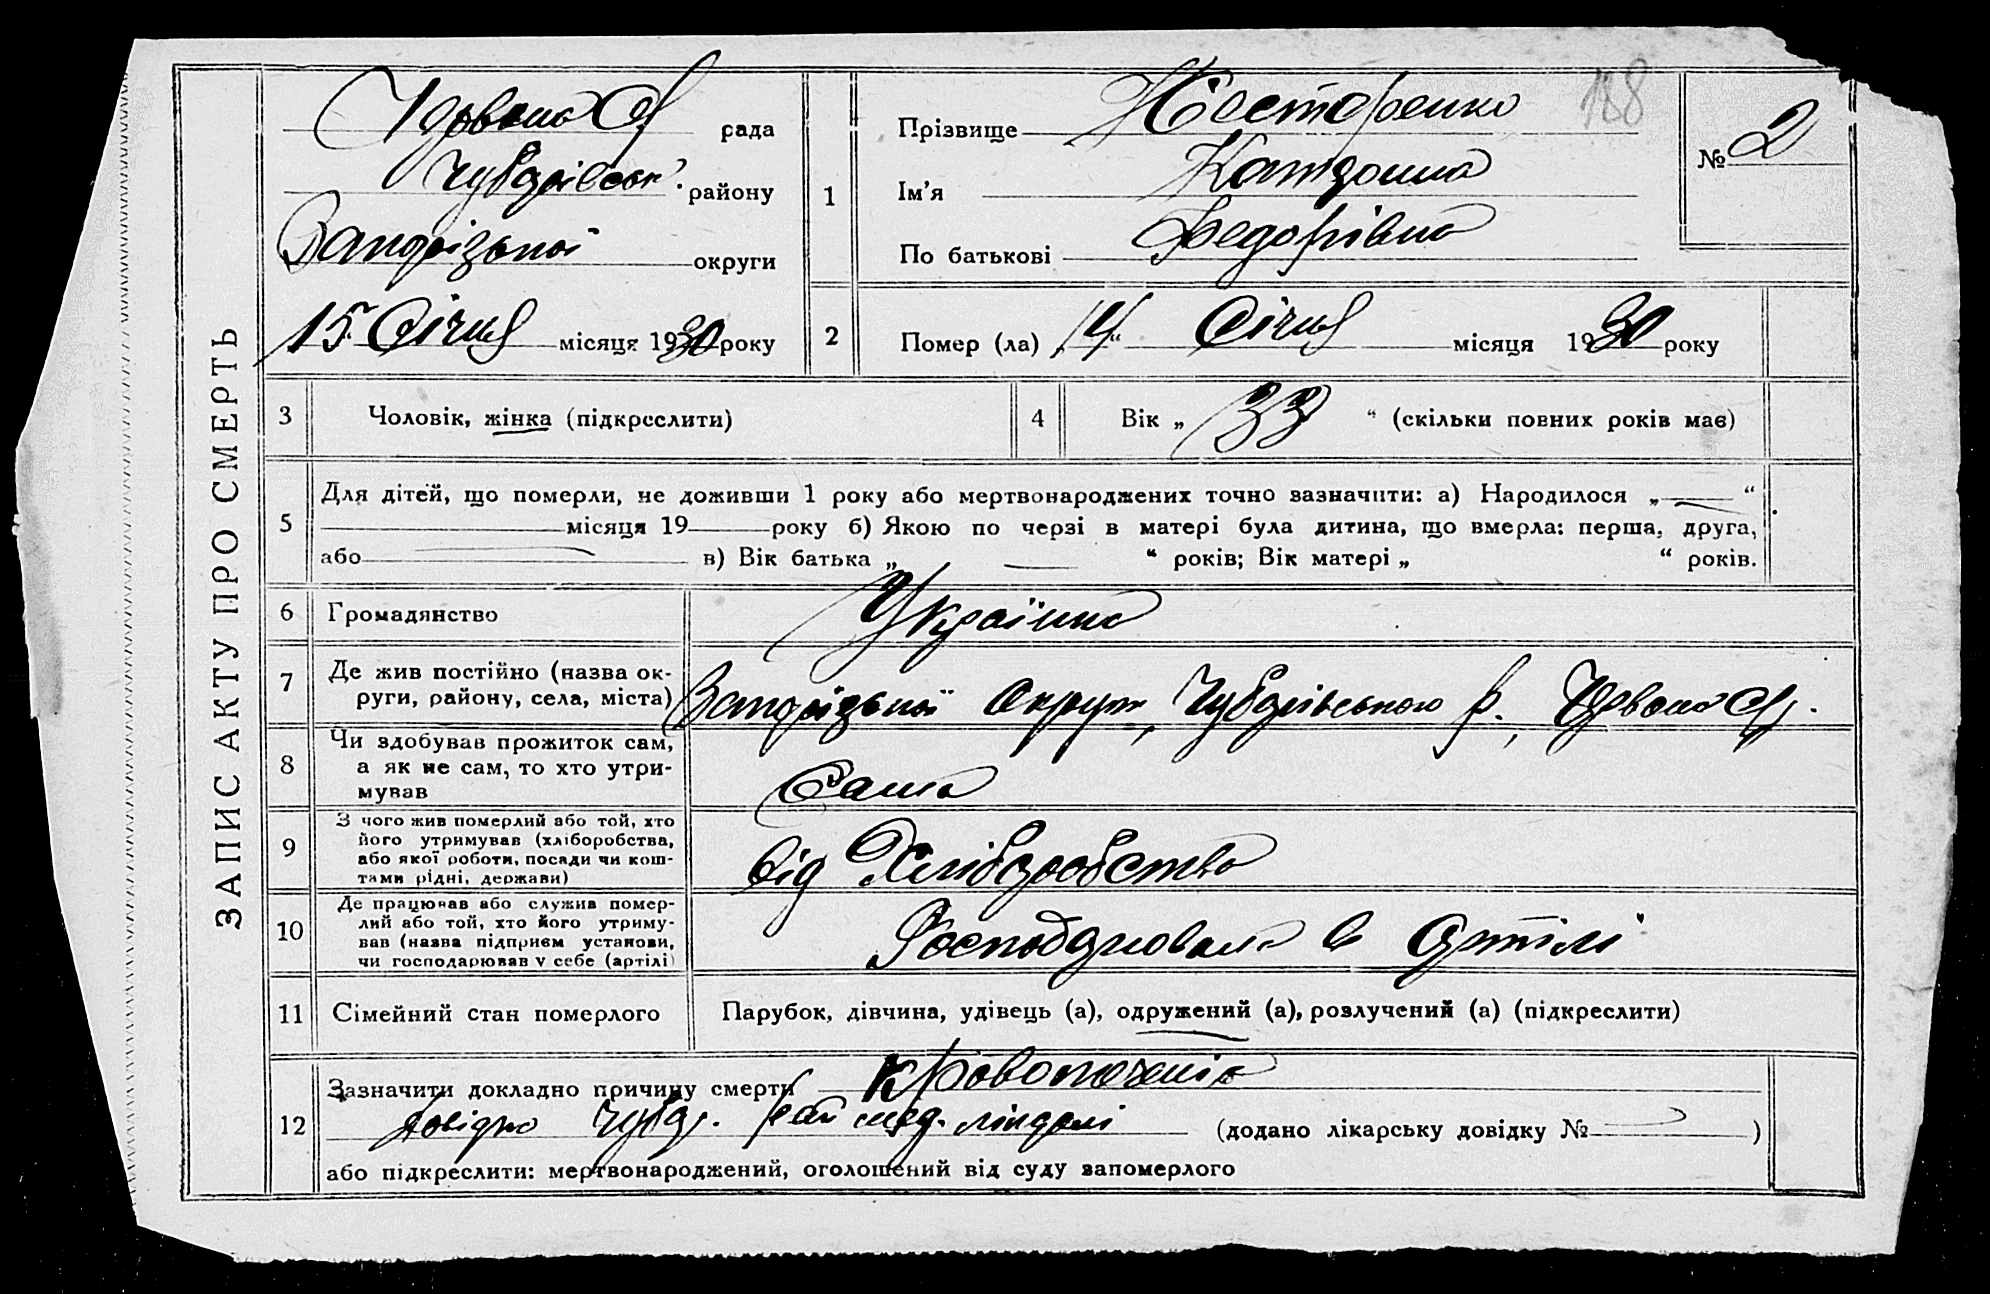 188
ЗАПИС АКТУ ПРО СМЕРТЬ
рада
району
Запорізької округи
15 Січня місяця 1930 року
1
Прізвище Нестеренко
Ім'я
По батькові Федорівна
№ 2
2
Помер (ла) „14“ Січня місяця 1930 року
3
Чоловік, жінка (підкреслити)
4
Вік „33“ (скільки повних років має)
5
Для дітей, що померли, не доживши 1 року або мертвонароджених точно зазначити: а) Народилося „—“
місяця 19 року б) Якою по черзі в матері була дитина, що вмерла: перша, друга,
або — в) Вік батька „—“ років; Вік матері „ “ років.
6
Громадянство
Українка
7
Де жив постійно (назва ок-
руги, району, села, міста)
Запорізької Округи, р.,
8
Чи здобував прожиток сам,
а як не сам, то хто утри-
мував
Сама
9
З чого жив померлий або той, хто
його утримував (хліборобства,
або якої роботи, посади чи кош-
тами рідні, держави)
від Хліборобства
10
Де працював або служив помер-
лий або той, хто його утриму-
вав (назва підприєм установи,
чи господарював у себе (артілі)
в Артілі
11
Сімейний стан померлого
Парубок, дівчина, удівець (а), одружений (а), розлучений (а) (підкреслити)
12
Зазначити докладно причину смерти
(додано лікарську довідку № — )
або підкреслити: мертвонароджений, оголошений від суду запомерлого